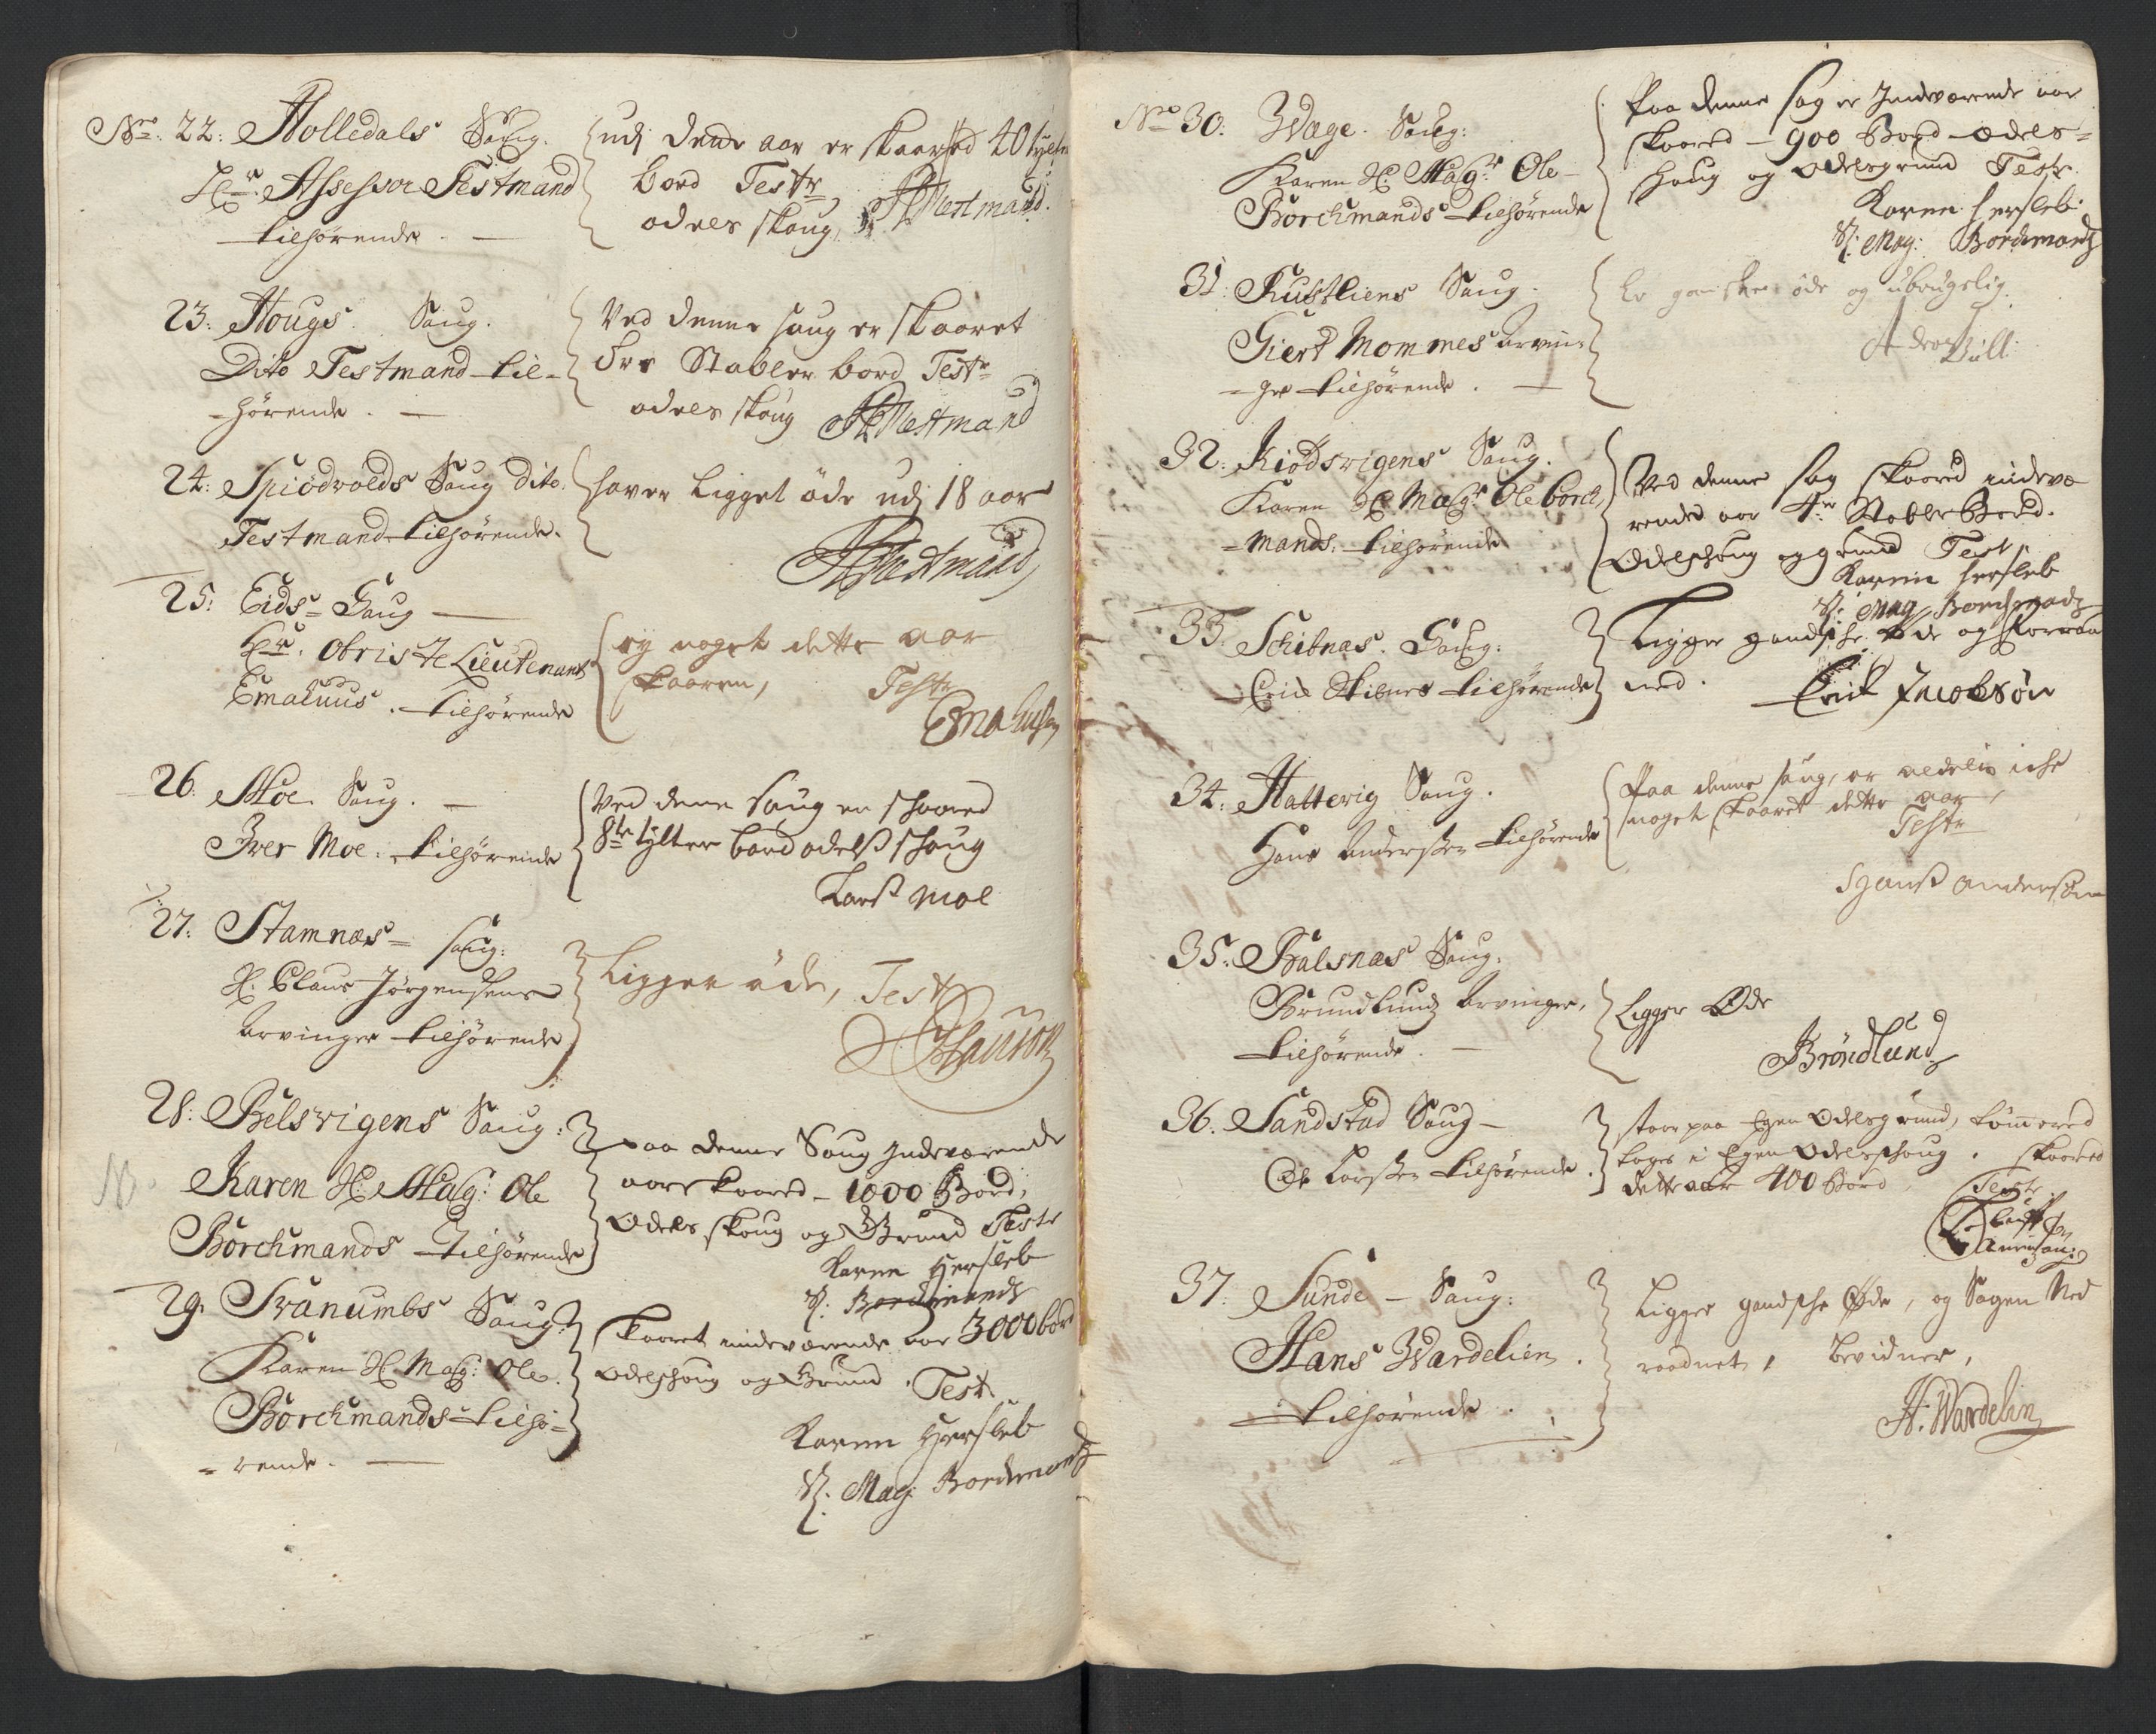 Nro. 22: Holledals Saug.
Hr. Assessor Testmand
tilhørende. —
udj dette aar er skaared 40 tylter
bord Testr,
odels skoug, Testmand.
23: Hougs. Saug.
Dito Testmand til-
-hørende. —
Ved denne saug er skaaret
Stabler bord Testr
odels skoug Testmand
24: Spiødvolds Saug Dito.
Testmand tilhørende.
hafver Ligget øde udj 18 aar
Testmand
25: Eids- Saug —
Hr. Obriste Lieutenant
Emahuus. tilhørende
ey noget dette aar
skaaren,
Testr
Emahusen
26. Moe. Saug. —
Iver Moe. tilhørende
Ved denne saug er schaared
8te tylter bord odelß schoug
Larß Moe
27. Stamnæs- saug:
H. Claus Jørgensens
Arvinger tilhørende
Ligger øde, Test
28: Belsvigens Saug:
Karen H. Mag: Ole
Borchmands tilhørende
NB.
paa denne Saug Indeværende
aar skaared - 1000 Bord,
Odels skoug og Grund Testr
Karen Hersleb
S. Borchmands
29. Svanumbs Saug:
Karen H. Mag: Ole
Borchmands tilhø-
-rende. —
skaaret indeværende aar 3000 bord
odelschoug og Grund. Test.
Karen Hersleb
S. Mag: Borchmands
Nro 30. Wage. Saug:
Karen H. Magr. Ole-
Borchmands tilhørende
Paa denne sag er Indeværende aar
skaared - 900 Bord - odels-
schoug og odelsgrund Test.
Karen Hersleb.
S. Mag: Borchmands
31: Kustliens Saug.
Giert Mommes Arvin-
-ger tilhørende. —
Er ganske øde og ubrugelig.
Büll.
32. Kiødsvigens Saug.
Karen H. Magr. Ole Borch-
-mands. tilhørende
Ved denne sag skaared indevæ
rende aar 4re Stabler Bord.
Odelschoug og grund Test,
Karen Hersleb
S. Mag Borchmands
33. Schibnas. Saug:
Erich Skibnes tilhørende
Ligger gandsche øde og forraa
ned.
Erick Jacobsøn
34. Hattevig Saug.
Hans Andersen tilhørende
Paa denne saug, er aldelis iche
noget skaaret dette aar,
Testr
Hanß andersøn
35. Balsnas Saug.
Brundlunds Arvinger,
tilhørende. —
Ligger Øde
Brøndlund
36. Sandstad Saug —
Ole Larsen tilhørende.
staar paa Egen Odelsgrund, tømmered
tages i Egen Odelsschoug. skaared
dette aar 400 Bord
Testr.
37. Sunde — Saug:
Hans Wardelien.
tilhørende.
Ligger gandsche Øde, og Sagen Ned
raadnet, bevidner,
H. Wardelin